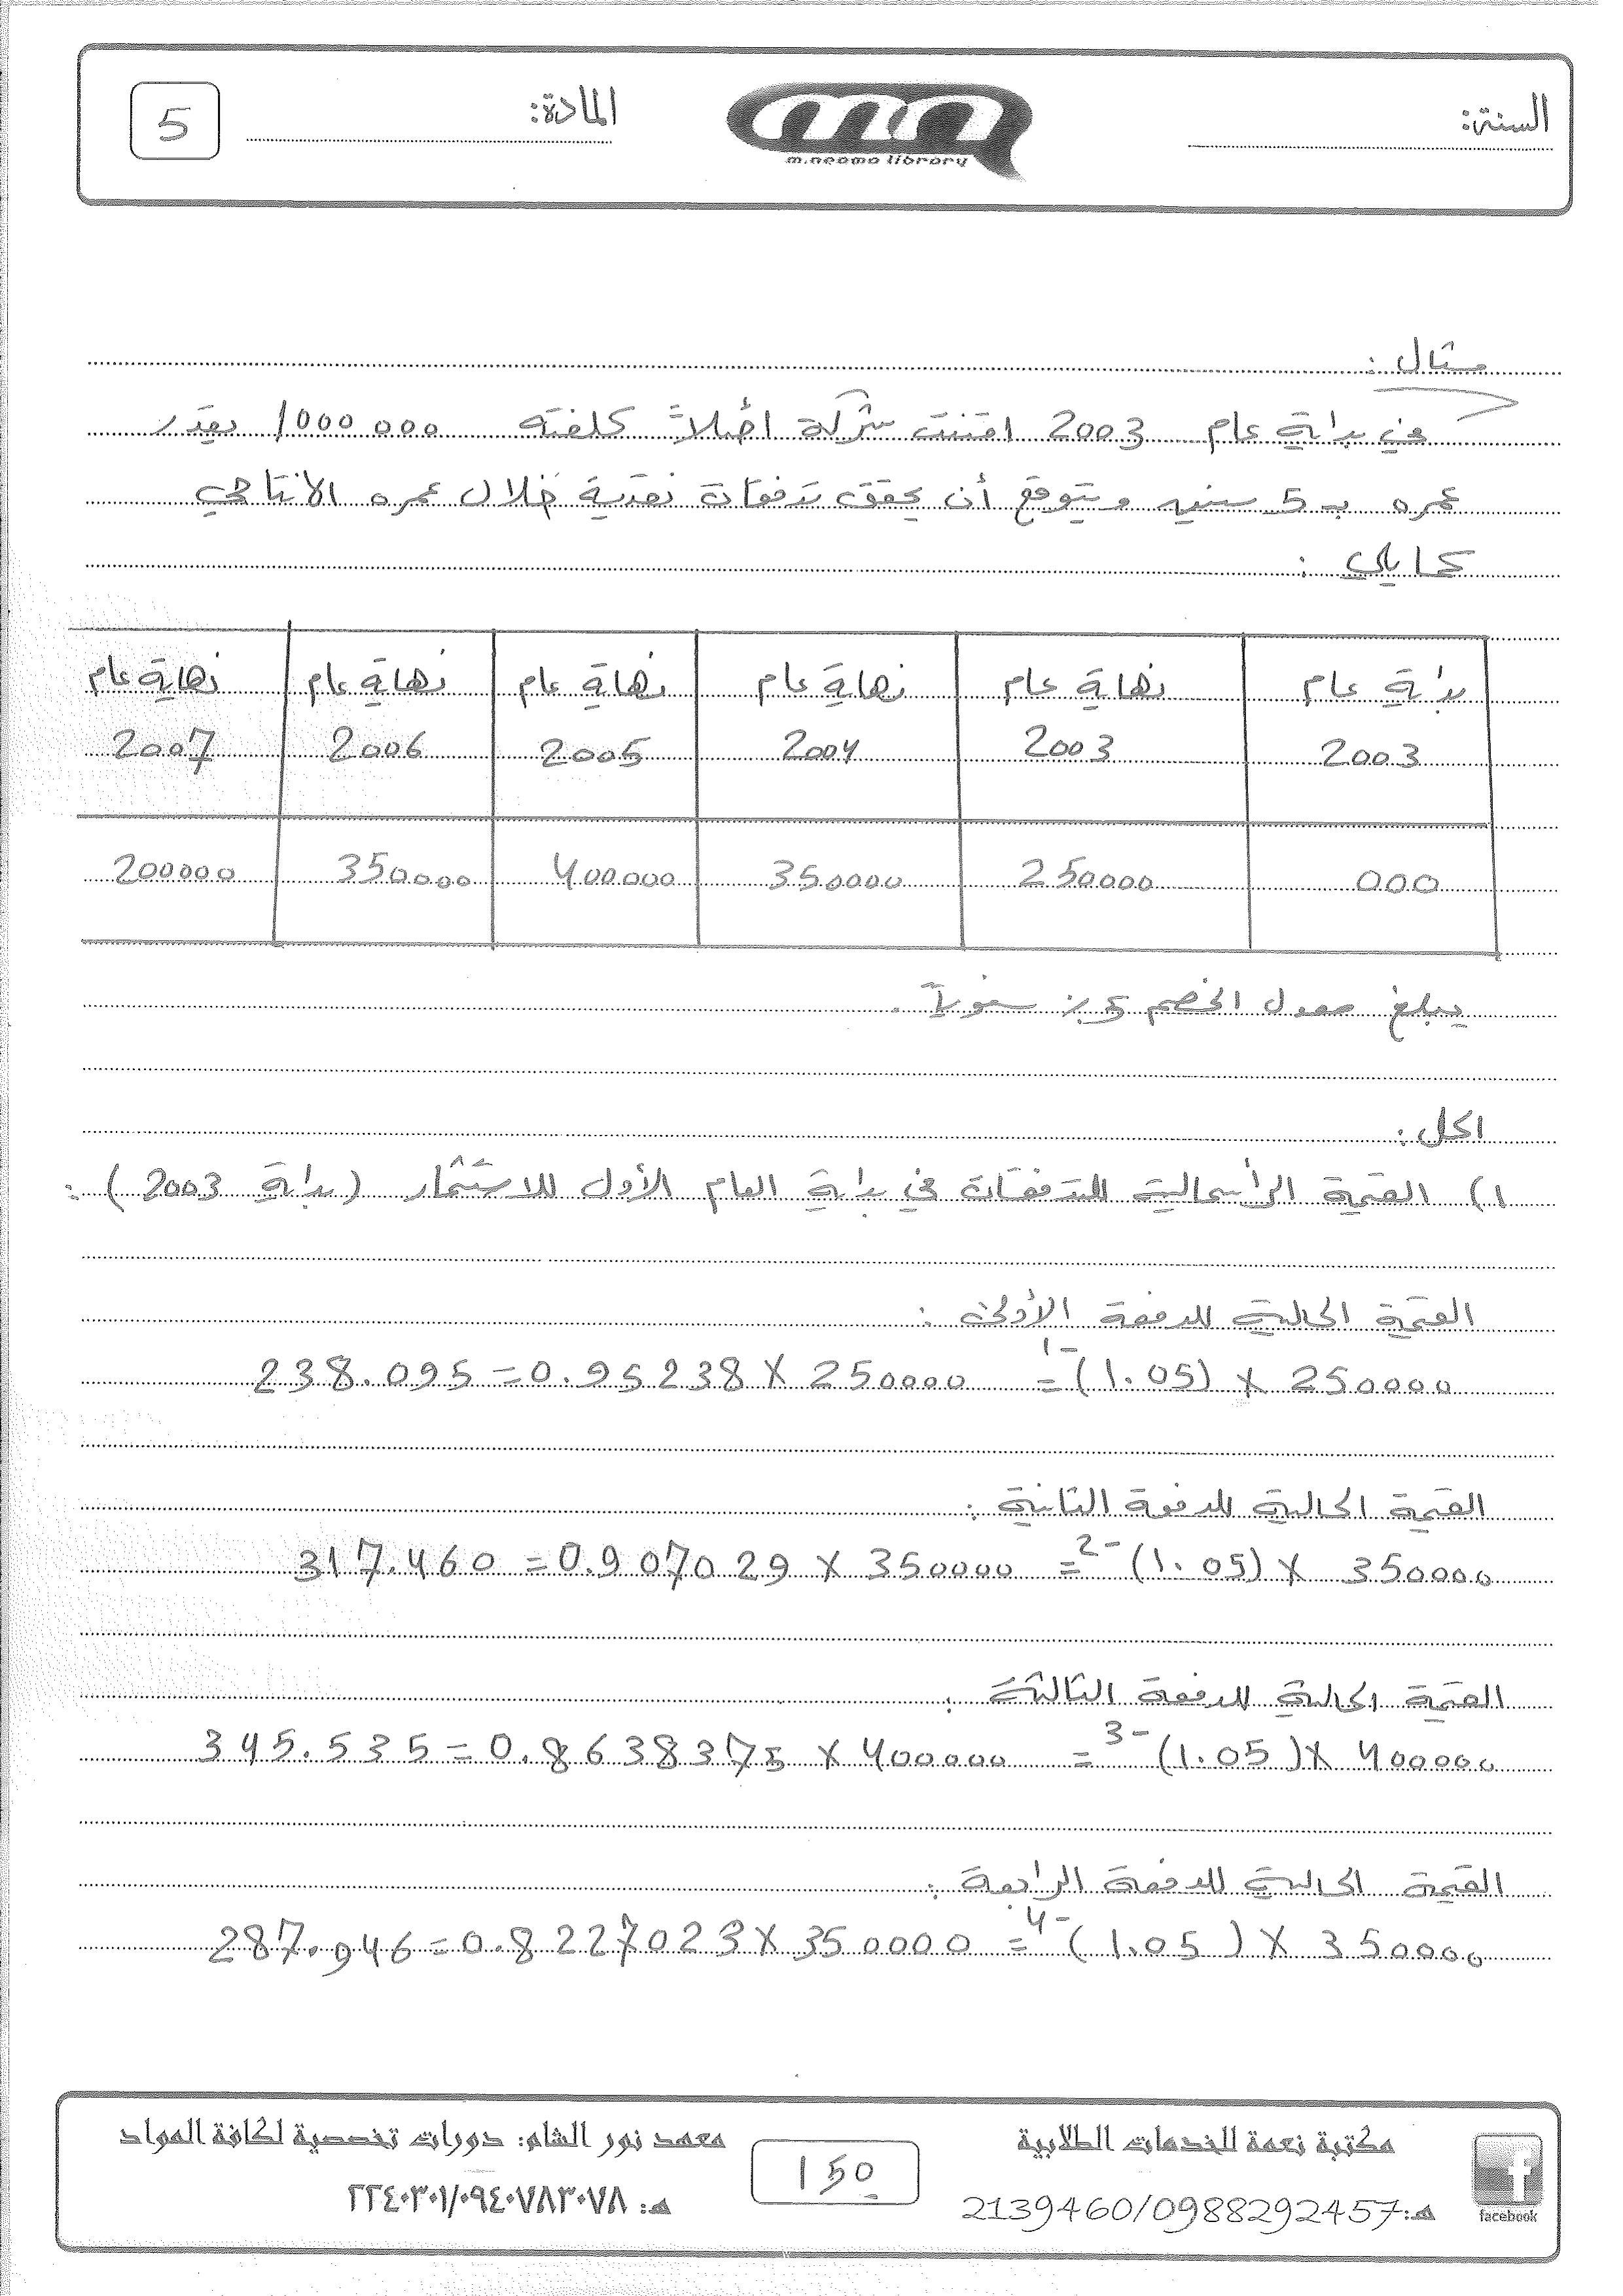 السنة:
m.neama library
المادة:
5
مثال :
في بداية عام 2003 اقتنت شركة أصلاً كلفته 1000 000 يقدر
عمره بـ 5 سنين ويتوقع أن يحقق تدفقات نقدية خلال عمره الانتاجي
كما يلي :
بداية عام نهاية عام نهاية عام نهاية عام نهاية عام نهاية عام
2003 2003 2004 2005 2006 2007
000 250000 350000 400000 350000 200000
يبلغ معدل الخصم 5% سنوياً .
الحل :
1) القيمة الرأسمالية للتدفقات في بداية العام الأول للاستثمار (بداية 2003) :
القيمة الحالية للدفعة الأولى :
250000 × (1.05)^-1 = 250000 × 0.95238 = 238.095
القيمة الحالية للدفعة الثانية :
350000 × (1.05)^-2 = 350000 × 0.907029 = 317.460
القيمة الحالية للدفعة الثالثة :
400000 × (1.05)^-3 = 400000 × 0.8638375 = 345.535
القيمة الحالية للدفعة الرابعة :
350000 × (1.05)^-4 = 350000 × 0.8227023 = 287.946
facebook
مكتبة نعمة للخدمات الطلابية
هـ:2139460/0988292457
150
معهد نور الشام: دورات تخصصية لكافة المواد
هـ: ٢٢٤٠٣٠١/٠٩٤٠٧٨٣٠٧٨